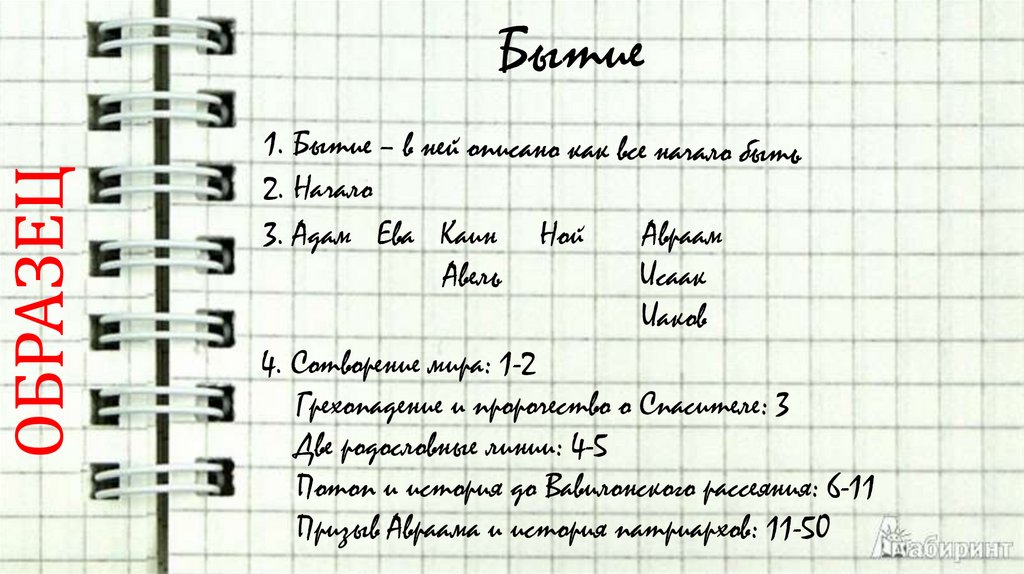 ОБРАЗЕЦ
Бытие
1. Бытие – в ней описано как все начало быть
2. Начало
3. Адам Ева Каин Ной Авраам
Авель Исаак
Иаков
4. Сотворение мира: 1-2
Грехопадение и пророчество о Спасителе: 3
Две родословные линии: 4-5
Потоп и история до Вавилонского рассеяния: 6-11
Призыв Авраама и история патриархов: 11-50
Лабиринт